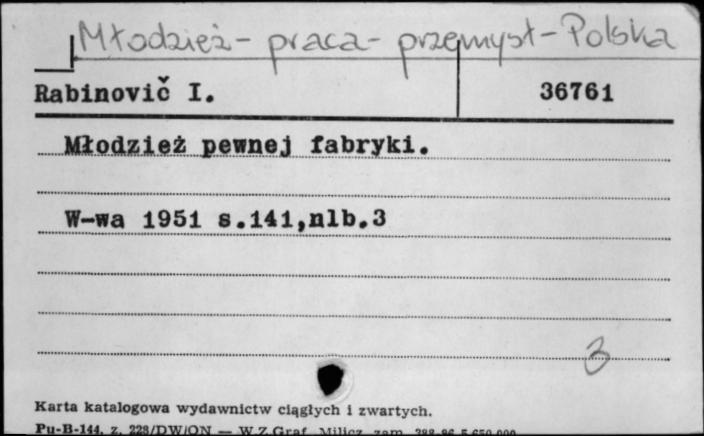 Młodzież - praca - przemysł - Polska
Rabinovič I.
36761
Młodzież pewnej fabryki.
W-wa 1951 s.141,nlb.3
3
Karta katalogowa wydawnictw ciągłych i zwartych.
Pu-B-144, z. 228/DW/ON — W.Z.Graf. Milicz, zam.